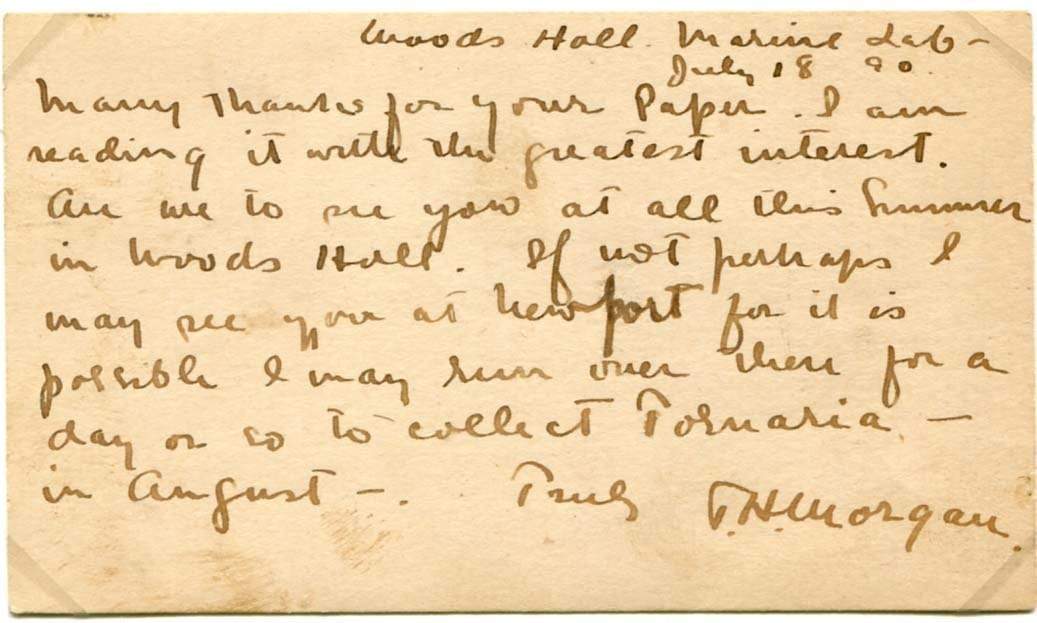 Woods Holl. Marine Lab -
July 18 90.
Many thanks for your Paper. I am
reading it with the greatest interest.
Are we to see you at all this Summer
in Woods Holl. If not perhaps I
may see you at Newport for it is
possible I may run over there for a
day or so to collect Tornaria -
in August -. Truly T.H. Morgan.